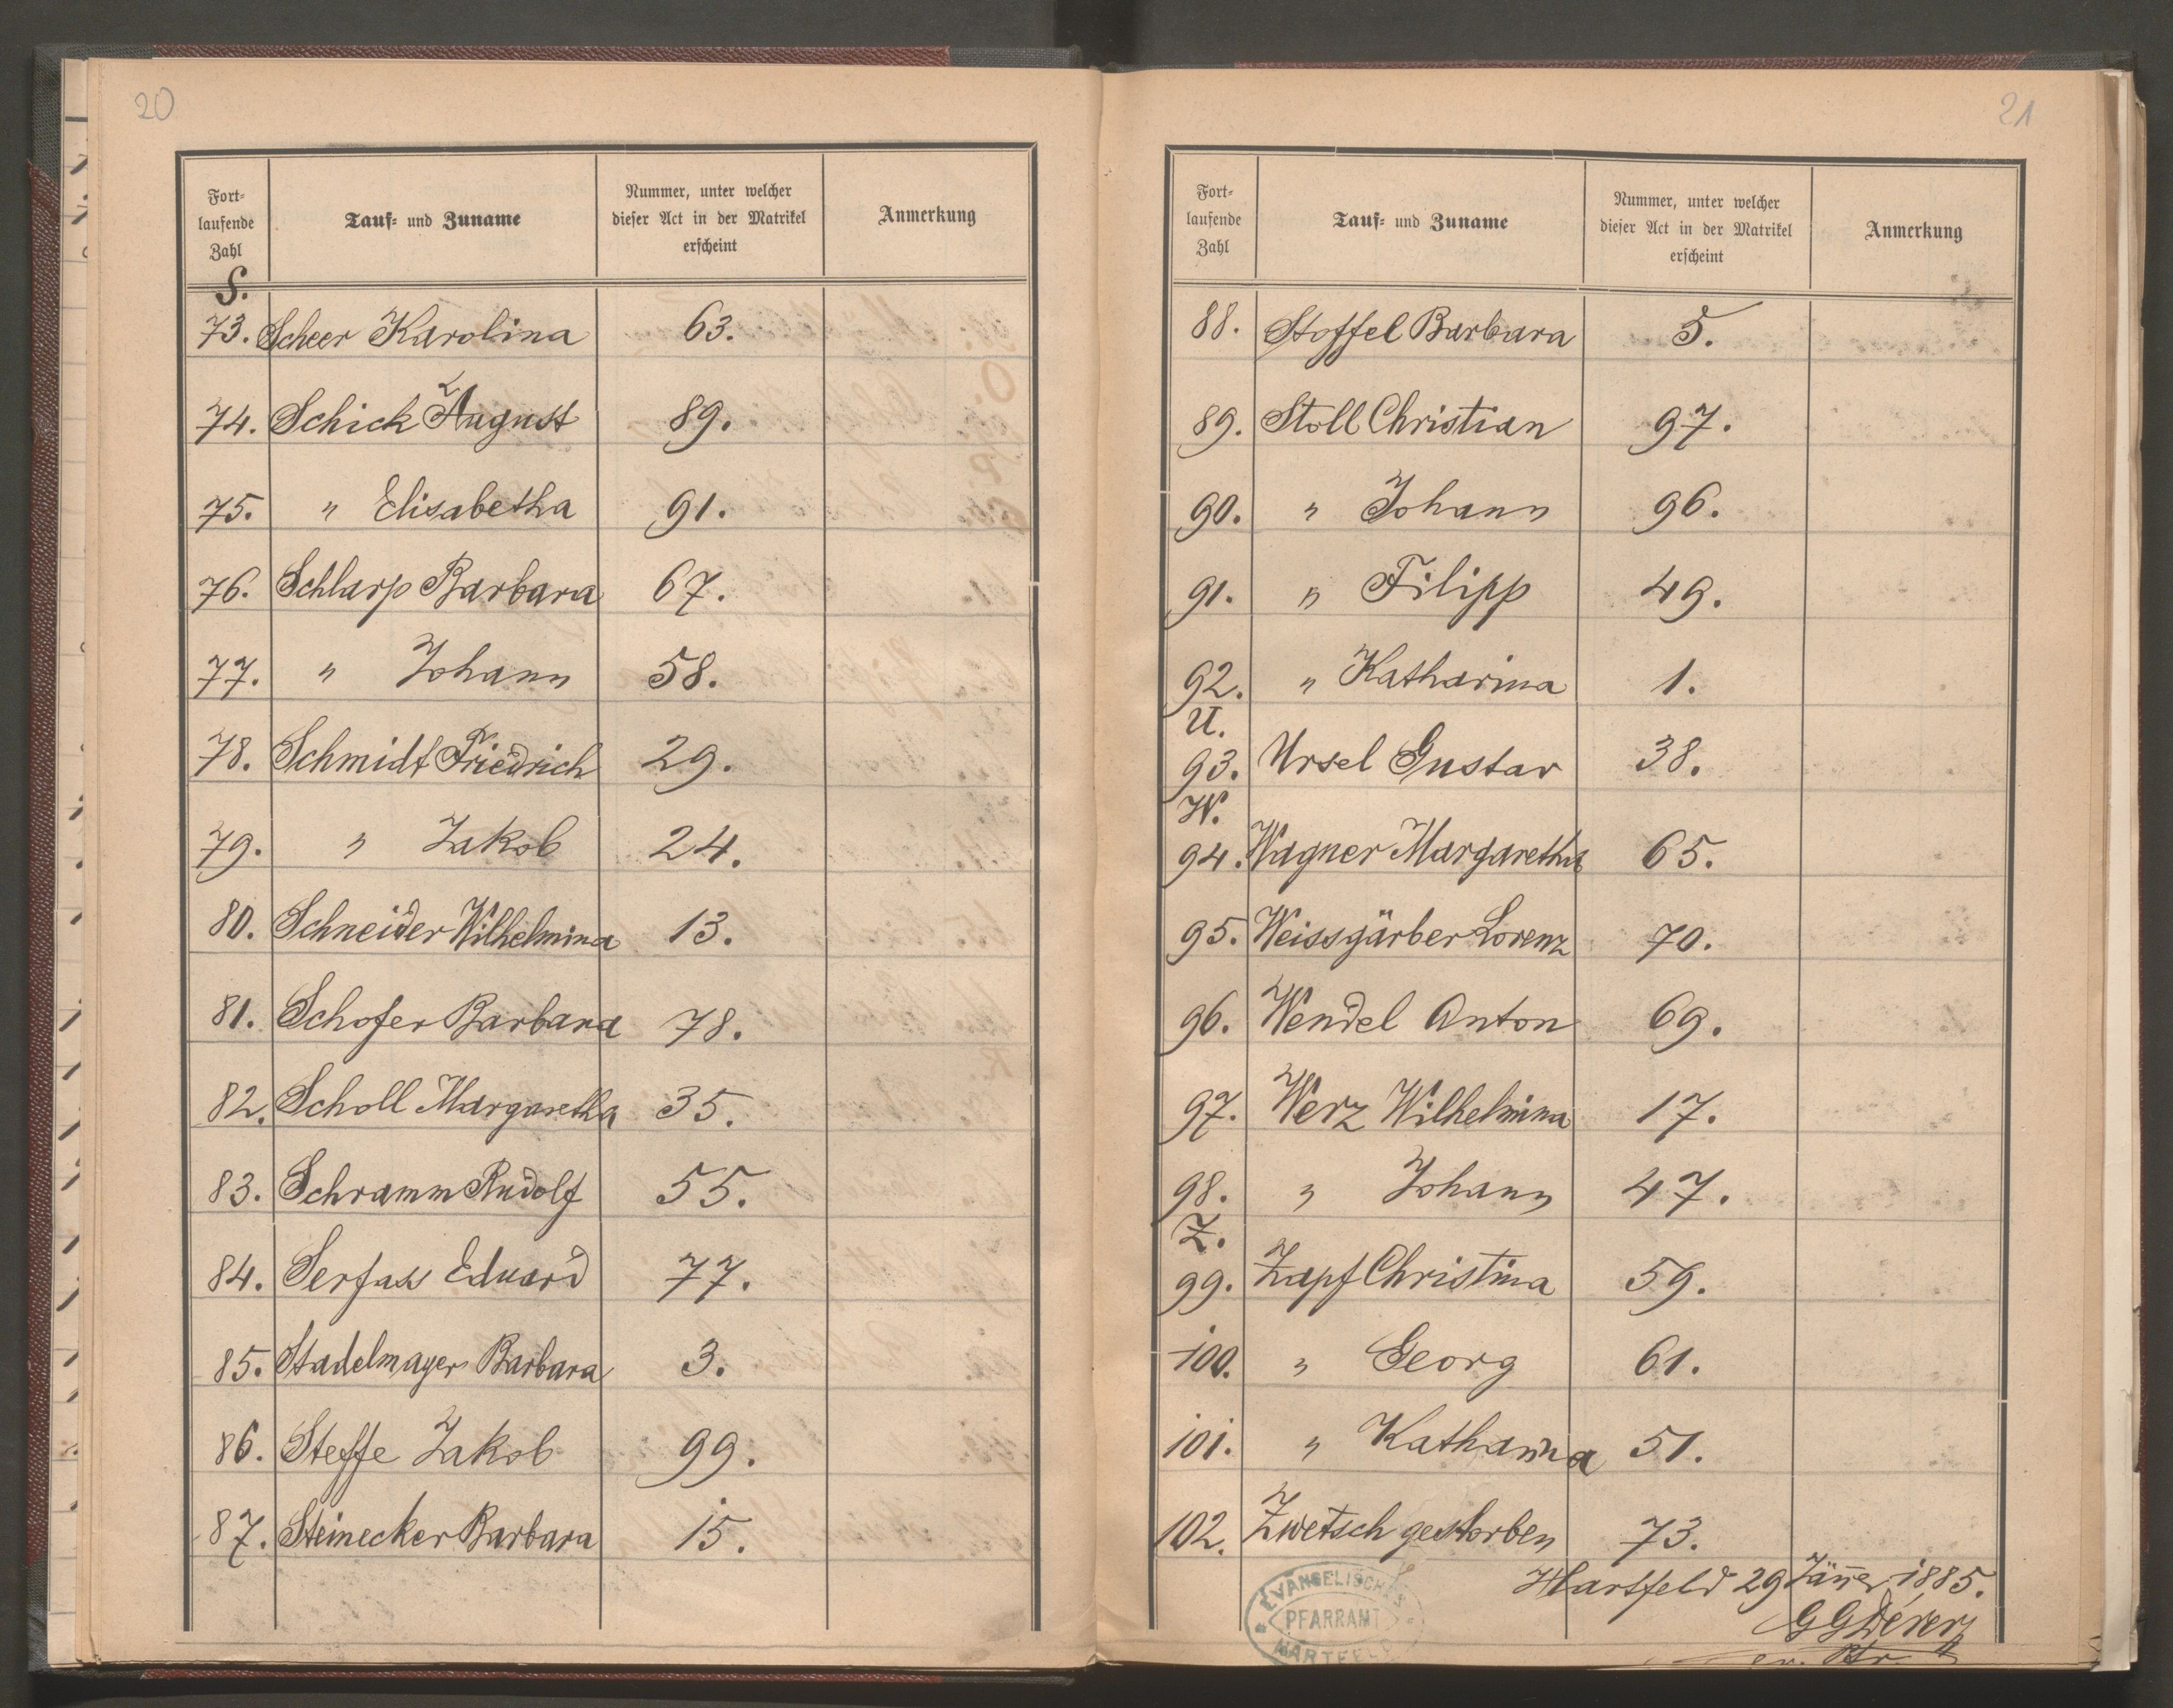 20
Fort-
laufende
Zahl
Tauf- und Zuname
Nummer, unter welcher
dieser Act in der Matrikel
erscheint
Anmerkung
S.
73. Scheer Karolina 63.
74. Schick August 89.
75. " Elisabetha 91.
76. Schlarp Barbara 67.
77. " Johann 58.
78. Schmidt Friedrich 29.
79. " Jakob 24.
80. Schneider Wilhelmina 13.
81. Schofer Barbara 78.
82. Scholl Margaretha 35.
83. Schramm Rudolf 55.
84. Serfas Eduard 77.
85. Stadelmayer Barbara 3.
86. Steffe Jakob 99.
87. Steinecker Barbara 15.
21
Fort-
laufende
Zahl
Tauf- und Zuname
Nummer, unter welcher
dieser Act in der Matrikel
erscheint
Anmerkung
88. Stoffel Barbara 5.
89. Stoll Christian 97.
90. " Johann 96.
91. " Filipp 49.
92. " Katharina 1.
U.
93. Ursel Gustav 38.
W.
94. Wagner Margaretha 65.
95. Weissgärber Lorenz 70.
96. Wendel Anton 69.
97. Werz Wilhelmina 17.
98. " Johann 47.
Z.
99. Zapf Christina 59.
100. " Georg 61.
101. " Katharina 51.
102. Zwetsch gestorben 73.
Hartfeld 29 Jänner 1885.
EVANGELISCHES
PFARRAMT
HARTFELD